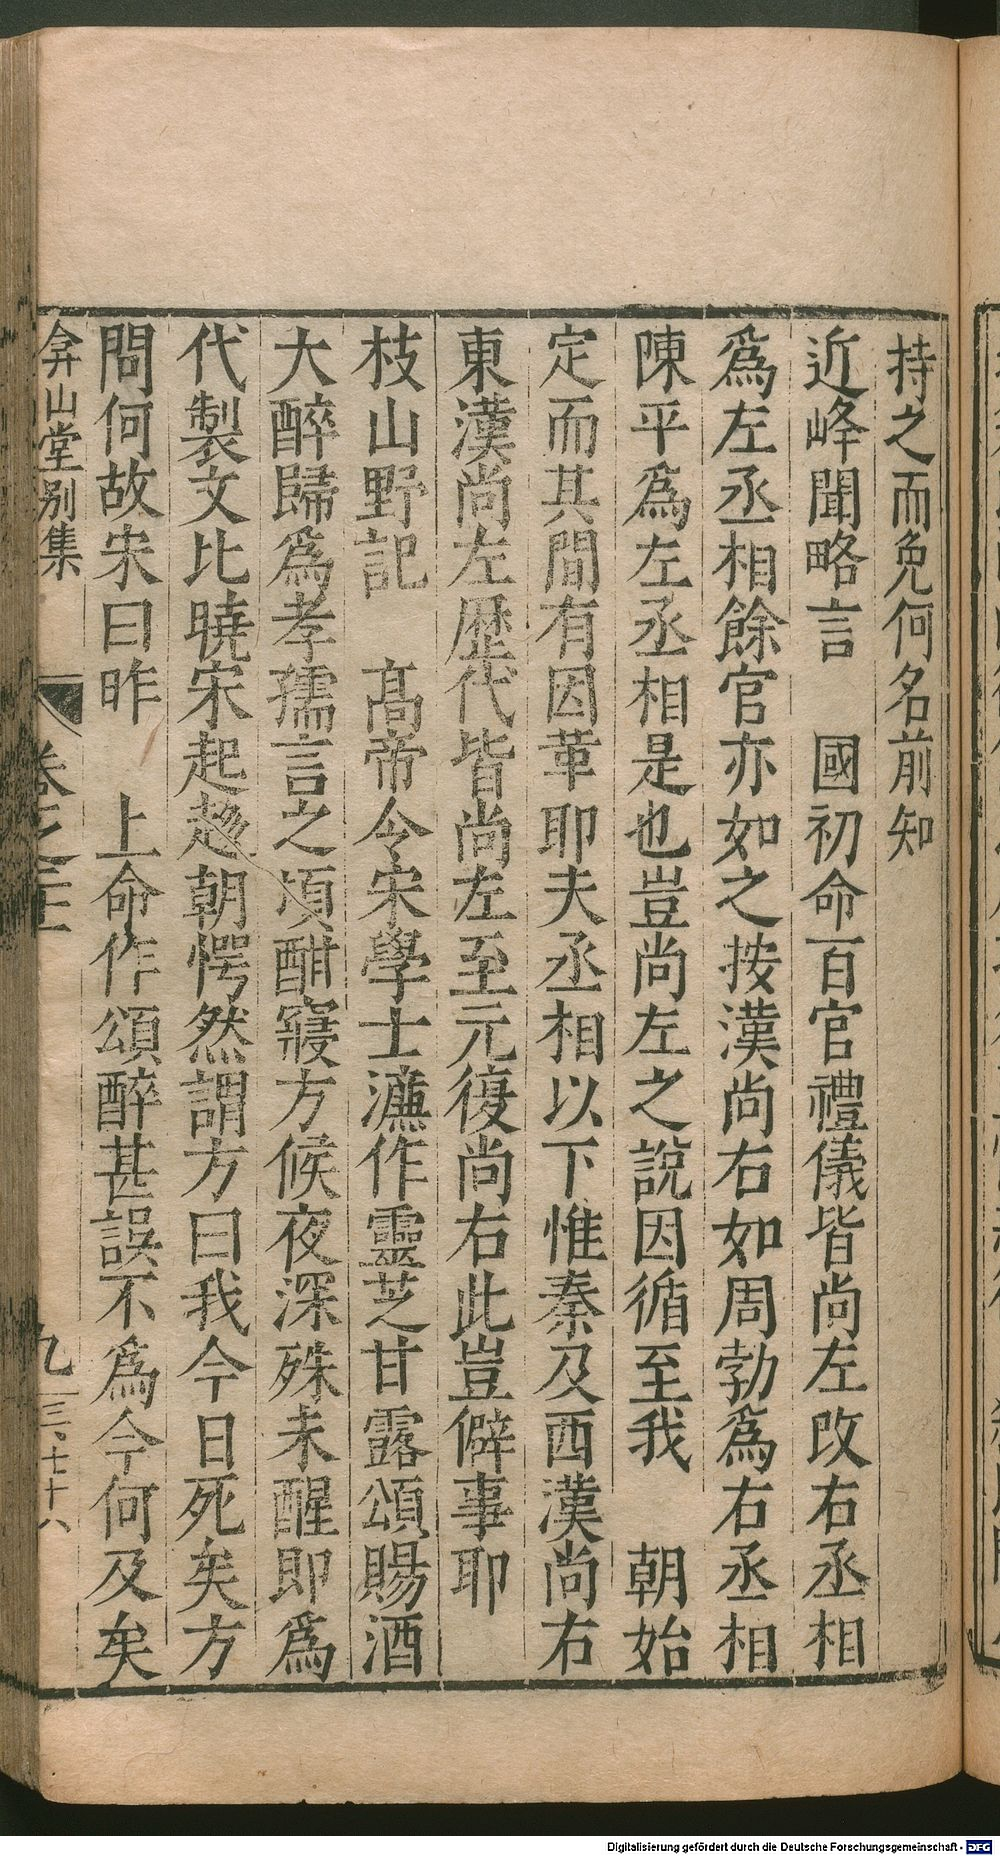 持之而免何名前知
近峰聞略言　國初命百官禮儀皆尚左改右丞相
爲左丞相餘官亦如之按漢尚右如周勃爲右丞相
陳平爲左丞相是也豈尚左之說因循至我　朝始
定而其間有因革耶夫丞相以下惟秦及西漢尚右
東漢尚左歷代皆尚左至元復尚右此豈僻事耶
枝山野記　高帝令宋學士濂作靈芝甘露頌賜酒
大醉歸爲孝孺言之頃酣寢方候夜深殊未醒即爲
代製文比曉宋起趨朝愕然謂方曰我今日死矣方
問何故宋曰昨　上命作頌醉甚誤不爲今何及矣
弇山堂别集
卷之二十
九
三七十八
Digitalisierung gefördert durch die Deutsche Forschungsgemeinschaft - DFG